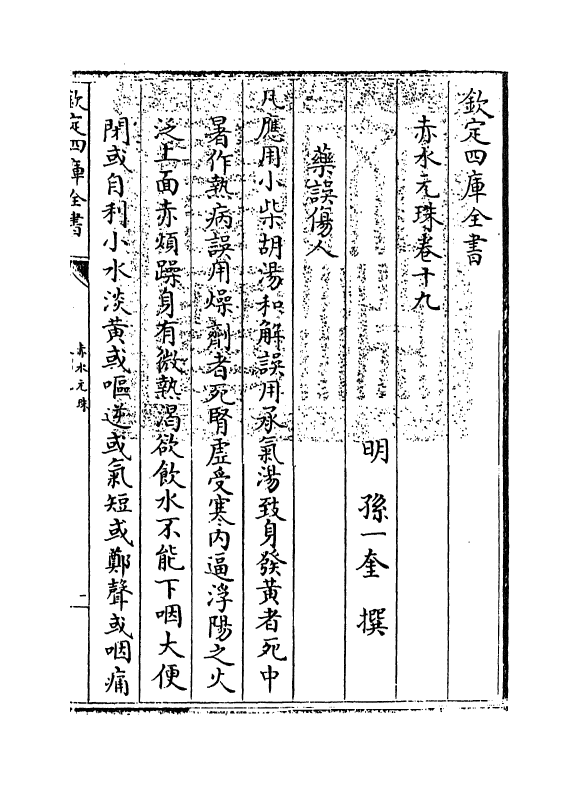 欽定四庫全書
赤水元珠卷十九
明 孫一奎 撰
藥誤傷人
凡應用小柴胡湯和解誤用承氣湯致身發黃者死中
暑作熱病誤用燥劑者死腎虛受寒內逼浮陽之火
泛上面赤煩躁身有微熱渴欲飲水不能下咽大便
閉或自利小水淡黃或嘔逆或氣短或鄭聲或咽痛
欽定四庫全書
赤水元珠